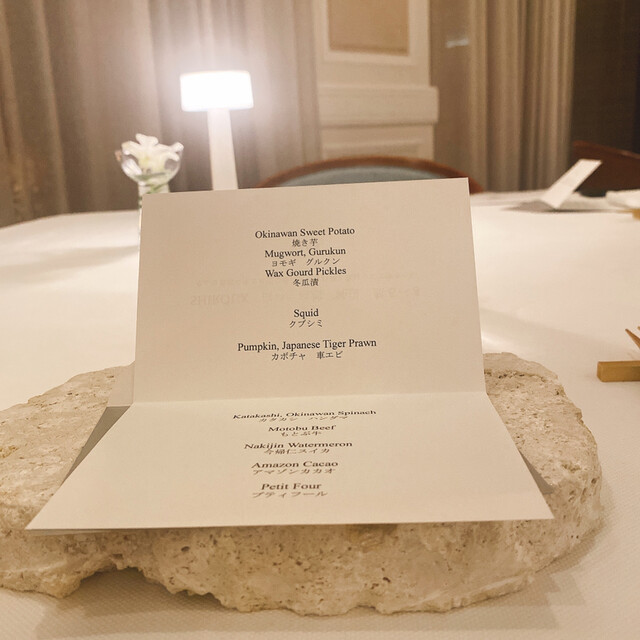 Okinawan Sweet Potato
焼き芋
Mugwort, Gurukun
ヨモギ　グルクン
Wax Gourd Pickles
冬瓜漬
Squid
クブシミ
Pumpkin, Japanese Tiger Prawn
カボチャ　車エビ
Katakashi, Okinawan Spinach
カタカシ　ハンダマ
Motobu Beef
もとぶ牛
Nakijin Watermeron
今帰仁スイカ
Amazon Cacao
アマゾンカカオ
Petit Four
プティフール